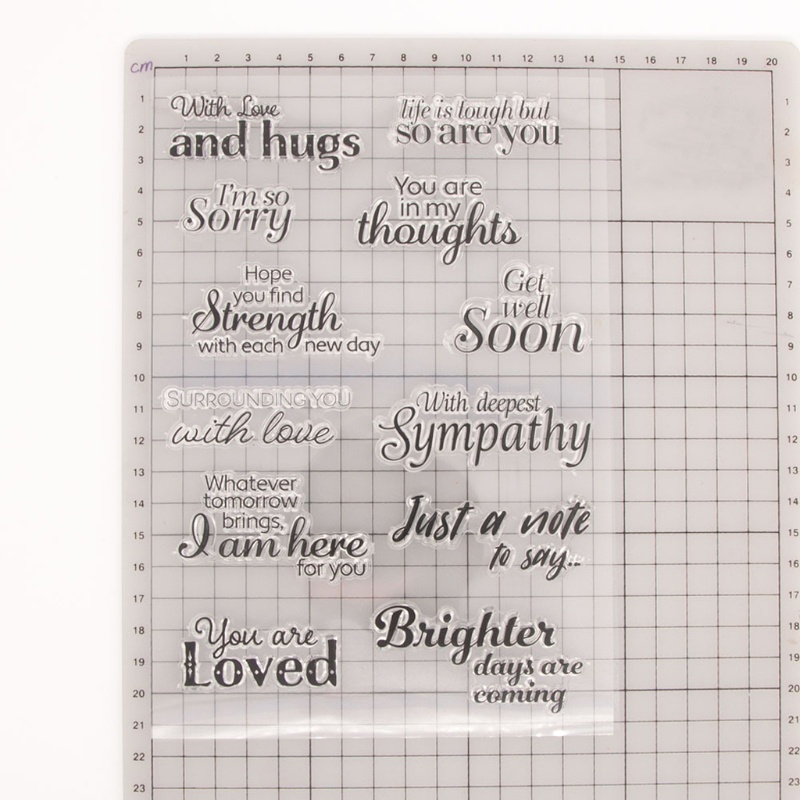 cm
1 2 3 4 5 6 7 8 9 10 11 12 13 14 15 16 17 18 19 20
With Love
and hugs
life is tough but
so are you
I'm so
Sorry
You are
in my
thoughts
Hope
you find
Strength
with each new day
Get
well
Soon
SURROUNDING YOU
with love
With deepest
Sympathy
Whatever
tomorrow
brings,
I am here
for you
Just a note
to say...
You are
Loved
Brighter
days are
coming
1
2
3
4
5
6
7
8
9
10
11
12
13
14
15
16
17
18
19
20
21
22
23
1
2
3
4
5
6
7
8
9
10
11
12
13
14
15
16
17
18
19
20
21
22
23